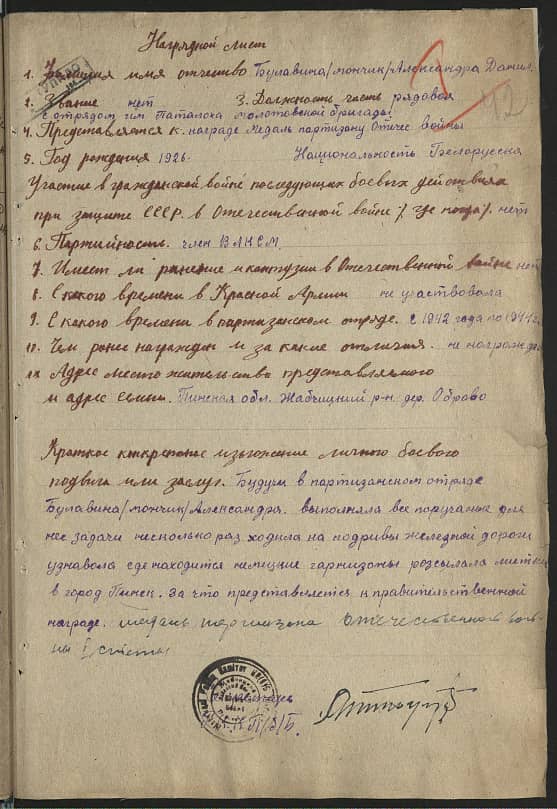 Наградной лист
1. Фамилия имя отчество Булавина/мончик/Александра Данил.
2. Звание нет 3. Должность часть рядовой
с отрядом им Паталока молотовской бригады
4. Представляется к награде Медаль партизану Отечес войны
5. Год рождения 1926. Национальность Белорусска
Участие в гражданской войне последующих боевых действиях
при защите СССР. в Отечественной войне /. где когда/. нет
6. Партийность. член ВЛКСМ.
7. Имеет ли ранение и контузии в Отечественной войне нет
8. С какого времени в Красной Армии не участвовала
9. С какого времени в партизанском отряде. с 1942 года по 1944 г.
10. Чем ранее награжден и за какие отличия. не награжде
11. Адрес место жительства представляемого
и адрес семьи. Пинская обл. Жабчицкий р-н. дер. Оброво
Краткое конкретное изложение личного боевого
подвига или заслуг. Будучи в партизанском отряде
Булавина/мончик/Александра. выполняла все поручаные для
нее задачи несколько раз ходила на подривы железной дороги
узнавала где находится немицкие гарнизоны розсылала листки
в город Пинск. за что представляется к правительственной
награде. медаль партизана Отечественной вой-
ны I степ
42